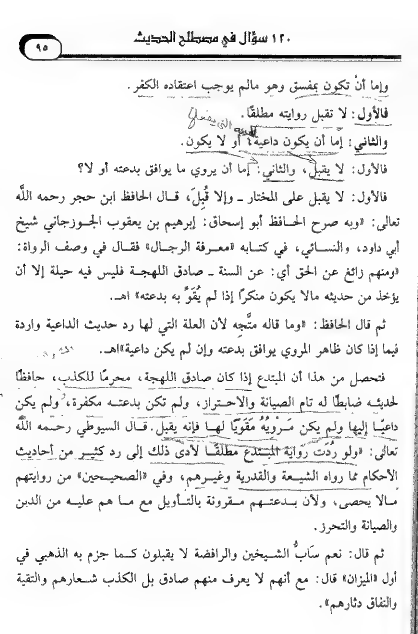 ١٢٠ سؤال في مصطلح الحديث
٩٥
وإما أن تكون بمفسق وهو مالم يوجب اعتقاده الكفر.
فالأول: لا تقبل روايته مطلقًا.
والثاني: إمَّا أن يكون داعية أو لا يكون.
فالأول: لا يقبل، والثاني: إما أن يروي ما يوافق بدعته أو لا؟
فالأول: لا يقبل على المختار ـ وإلا قُبِلَ، قال الحافظ ابن حجر رحمه اللَّه
تعالى: «وبه صرح الحافظ أبو إسحاق: إبرهيم بن يعقوب الجوزجاني شيخ
أبي داود، والنسائي، في كتابه «معرفة الرجال» فقال في وصف الرواة:
«ومنهم زائغ عن الحق أي: عن السنة ـ صادق اللهجة فليس فيه حيلة إلا أن
يؤخذ من حديثه مالا يكون منكرًا إذا لم يُقَوِّ به بدعته» اهـ.
ثم قال الحافظ: «وما قاله متَّجه لأن العلة التي لها رد حديث الداعية واردة
فيما إذا كان ظاهر المروي يوافق بدعته وإن لم يكن داعية»اهـ.
فتحصل من هذا أن المبتدع إذا كان صادق اللهجة، محرمًا للكذب، حافظًا
لحديثه ضابطًا له تام الصيانة والاحتراز، ولم تكن بدعته مكفرة، ولم يكن
داعيًا إليها ولم يكن مَرْويُهُ مقَويًا لها فإنه يقبل. قال السيوطي رحمه اللَّه
تعالى: «ولو رُدَت رواية المبتدع مطلقًا لأدى ذلك إلى رد كثير من أحاديث
الأحكام مما رواه الشيعة والقدرية وغيرهم، وفي «الصحيحين» من روايتهم
مالا يحصى، ولأن بدعتهم مقرونة بالتأويل مع ما هم عليه من الدين
والصيانة والتحرز.
ثم قال: نعم سَابُّ الشيخين والرافضة لا يقبلون كما جزم به الذهبي في
أول «الميزان» قال: مع أنهم لا يعرف منهم صادق بل الكذب شعارهم والتقية
والنفاق دثارهم».